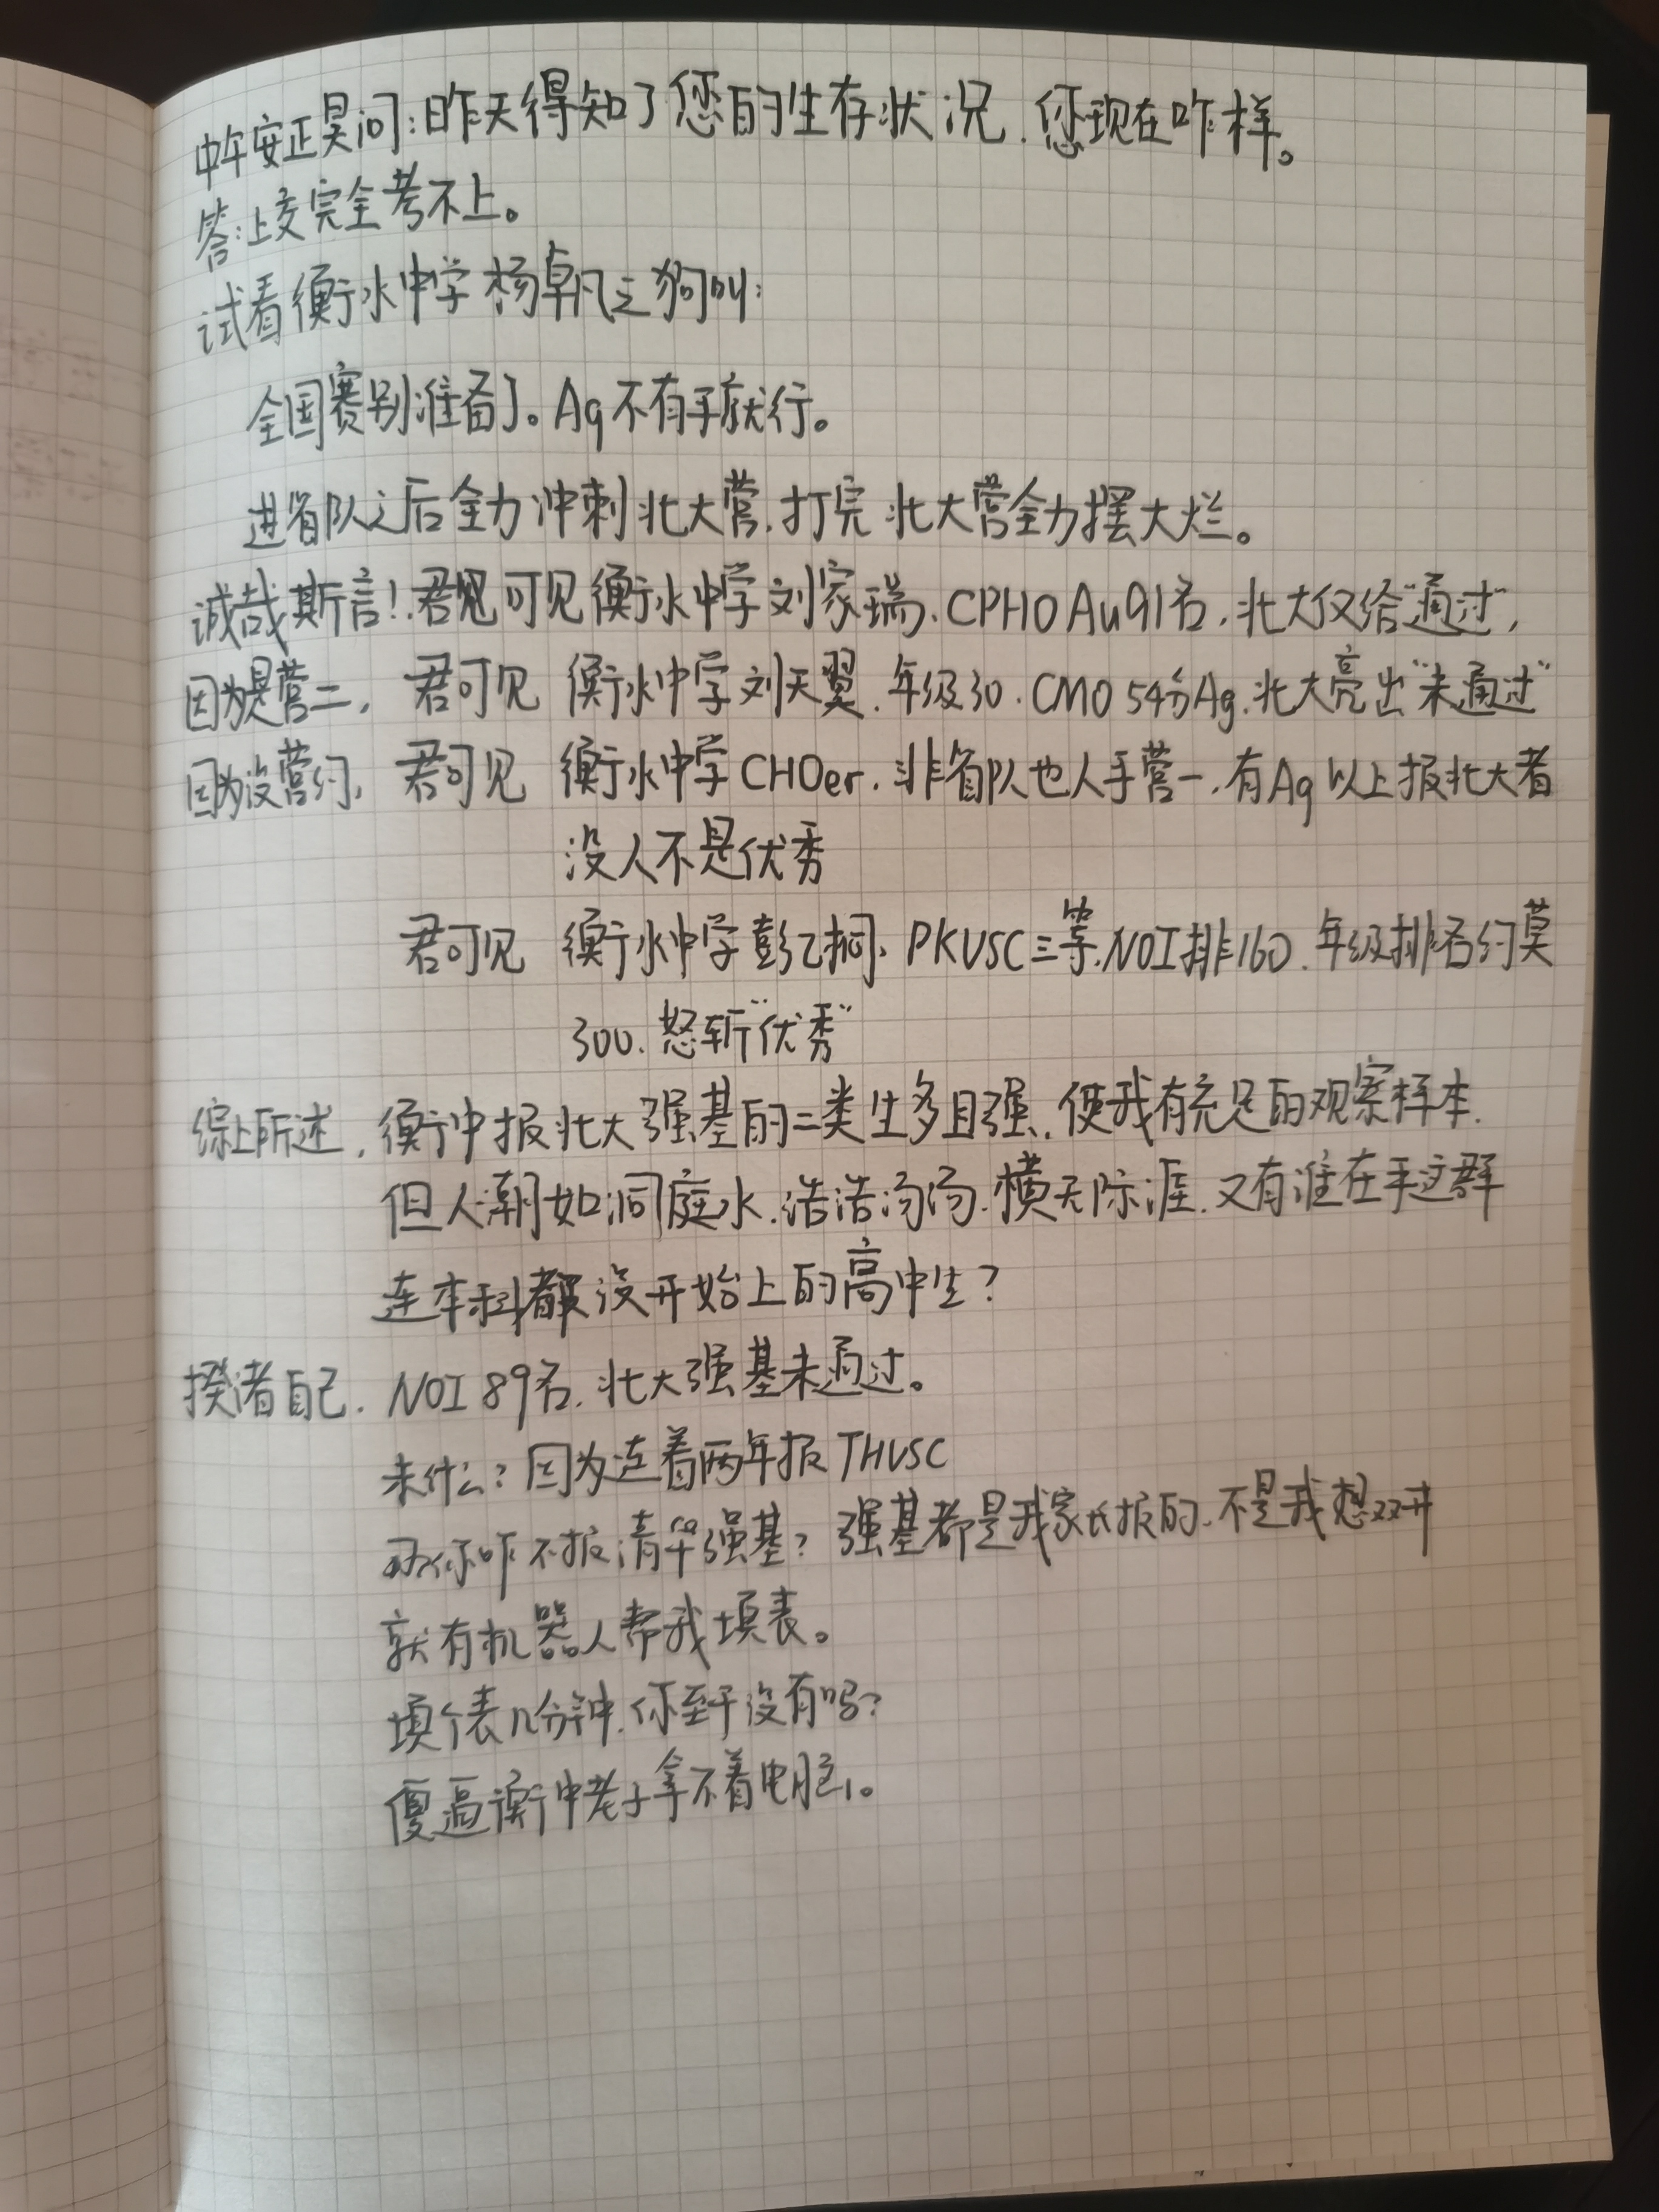 中午安正昊问:昨天得知了您的生存状况,您现在咋样。
答:上交完全考不上。
试看衡水中学杨卓凡之狗叫:
全国赛别准备了。Ag不有手就行。
进省队之后全力冲刺北大营,打完北大营全力摆大烂。
诚哉斯言!君可见衡水中学刘家瑞,CPHO Au91名,北大仅给“通过”,
因为是营二,君可见 衡水中学刘天翼,年级30,CMO 54分Ag,北大亮出“未通过”
因为没营约,君可见 衡水中学CHOer,非省队也人手营一,有Ag以上报北大者
没人不是优秀
君可见 衡水中学彭乙 PKUSC三等,NOI排160,年级排名约莫
300,怒斩“优秀”
综上所述,衡中报北大强基的二类生多且强,使我有充足的观察样本.
但人潮如洞庭水,浩浩汤汤,横无际涯,又有谁在乎这群
连本科都没开始上的高中生?
揆诸自己,NOI 89名,北大强基未通过。
未什么?因为连着两年报THUSC
那你咋不报清华强基?强基都是我家长报的,不是我想双开
就有机器人帮我填表。
填个表几分钟,你至于没有吗?
傻逼衡中老子拿不着电脑。